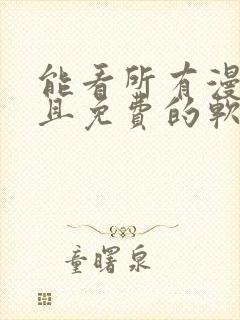 能看所有漫
且免费的軟
童曙泉